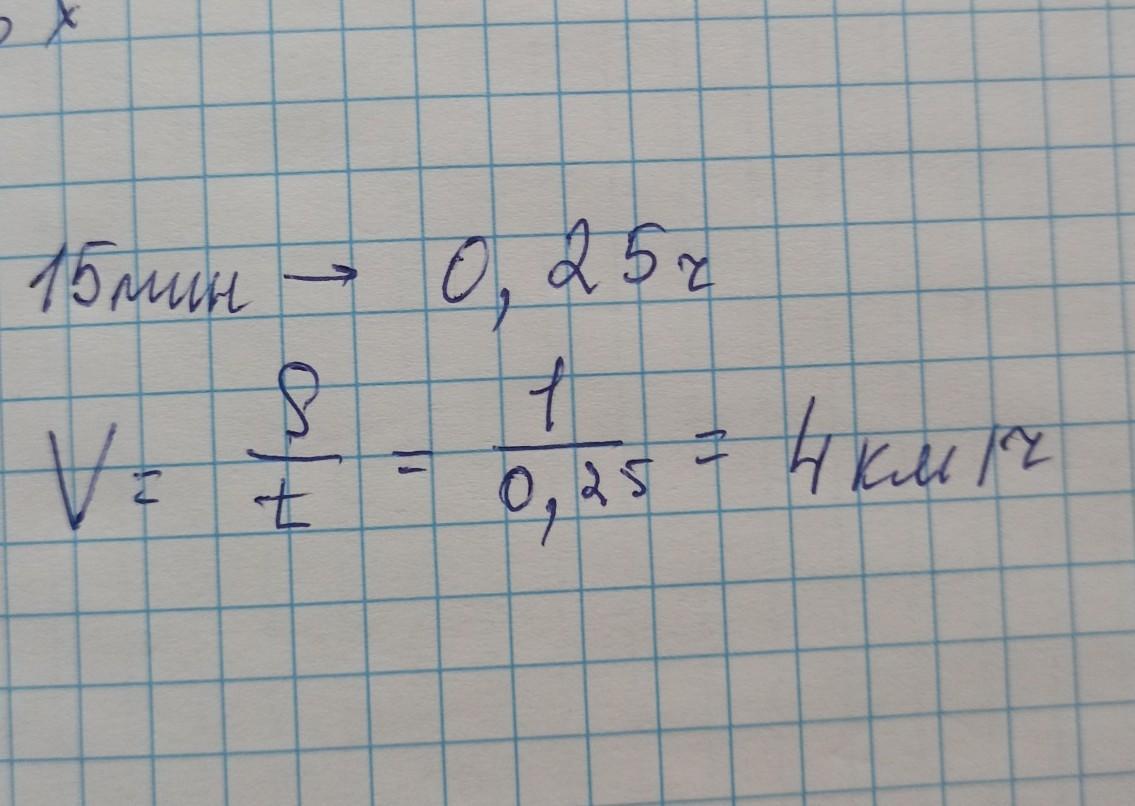 15мин → 0,25ч
V = S/t = 1/0,25 = 4км/ч